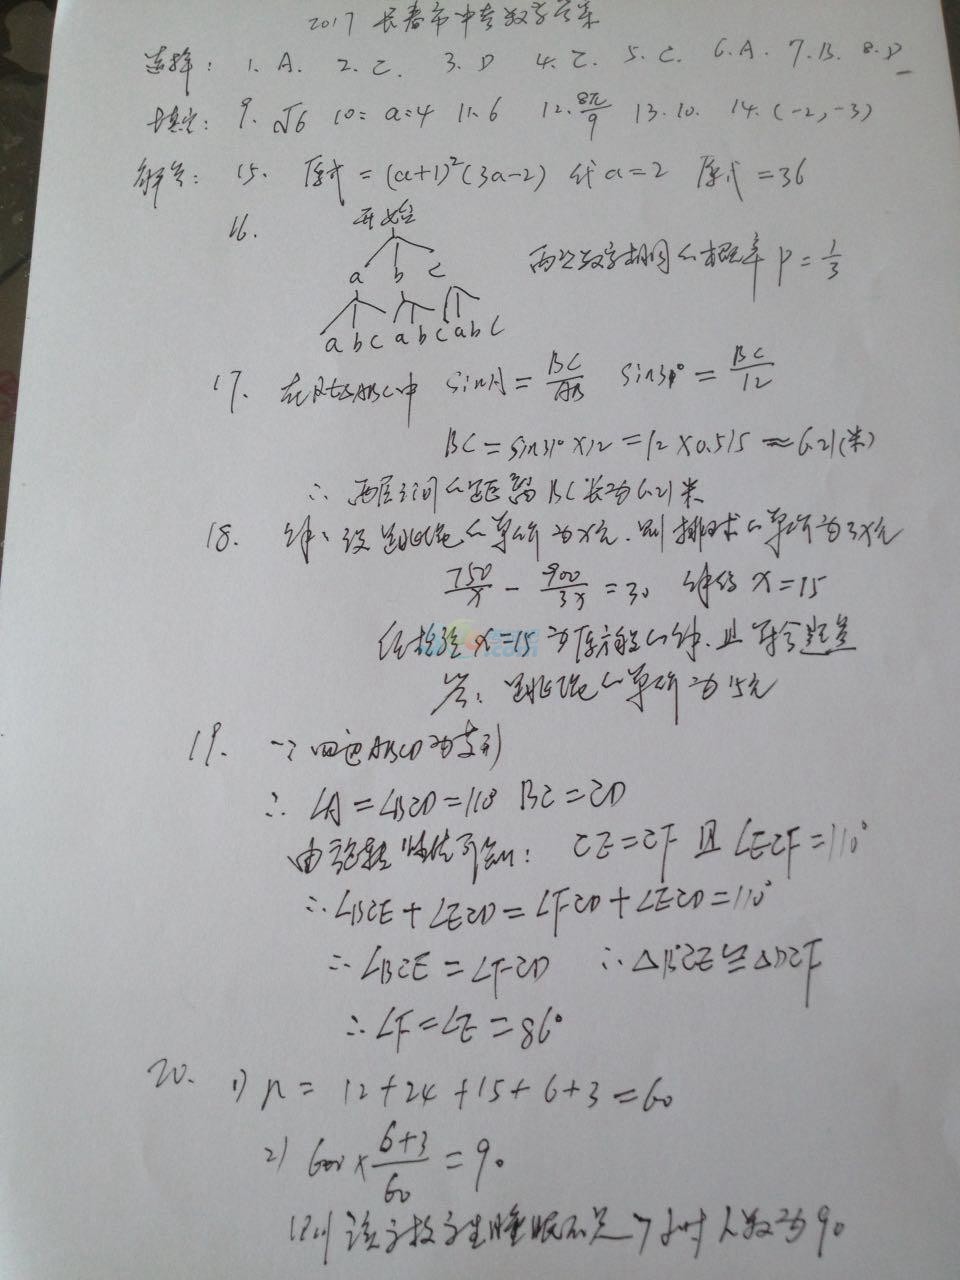 2017 长春市中考数学答案
选择: 1. A. 2. C. 3. D 4. C. 5. C. 6. A. 7. B. 8. D
填空: 9. √6 10: a=4 11. 6 12. 8π/9 13. 10. 14. (-2,-3)
解答: 15. 原式=(a+1)²(3a-2) 代a=2 原式=36
16. 开始
a b c
a b c a b c a b c
两次数字相同的概率 P=1/3
17. 在Rt△ABC中 sinA=BC/AB sin31°=BC/12
BC=sin31°×12=12×0.515≈6.21(米)
∴ 两层之间的距离BC长为6.21米
18. 解: 设跳绳的单价为x元. 则排球的单价为3x元
750/x - 900/3x = 30 解得 x=15
经检验 x=15为原方程的解. 且符合题意
答: 跳绳的单价为15元
19. ∵四边ABCD为菱形
∴ ∠A=∠BCD=110° BC=CD
由旋转性质可知: CE=CF 且∠ECF=110°
∴∠BCE+∠ECD=∠FCD+∠ECD=110°
∴∠BCE=∠FCD ∴△BCE≌△DCF
∴∠F=∠E=86°
20. 1) n= 12+24+15+6+3=60
2) 600×(6+3)/60=90
估计该校学生睡眠不足7小时人数为90